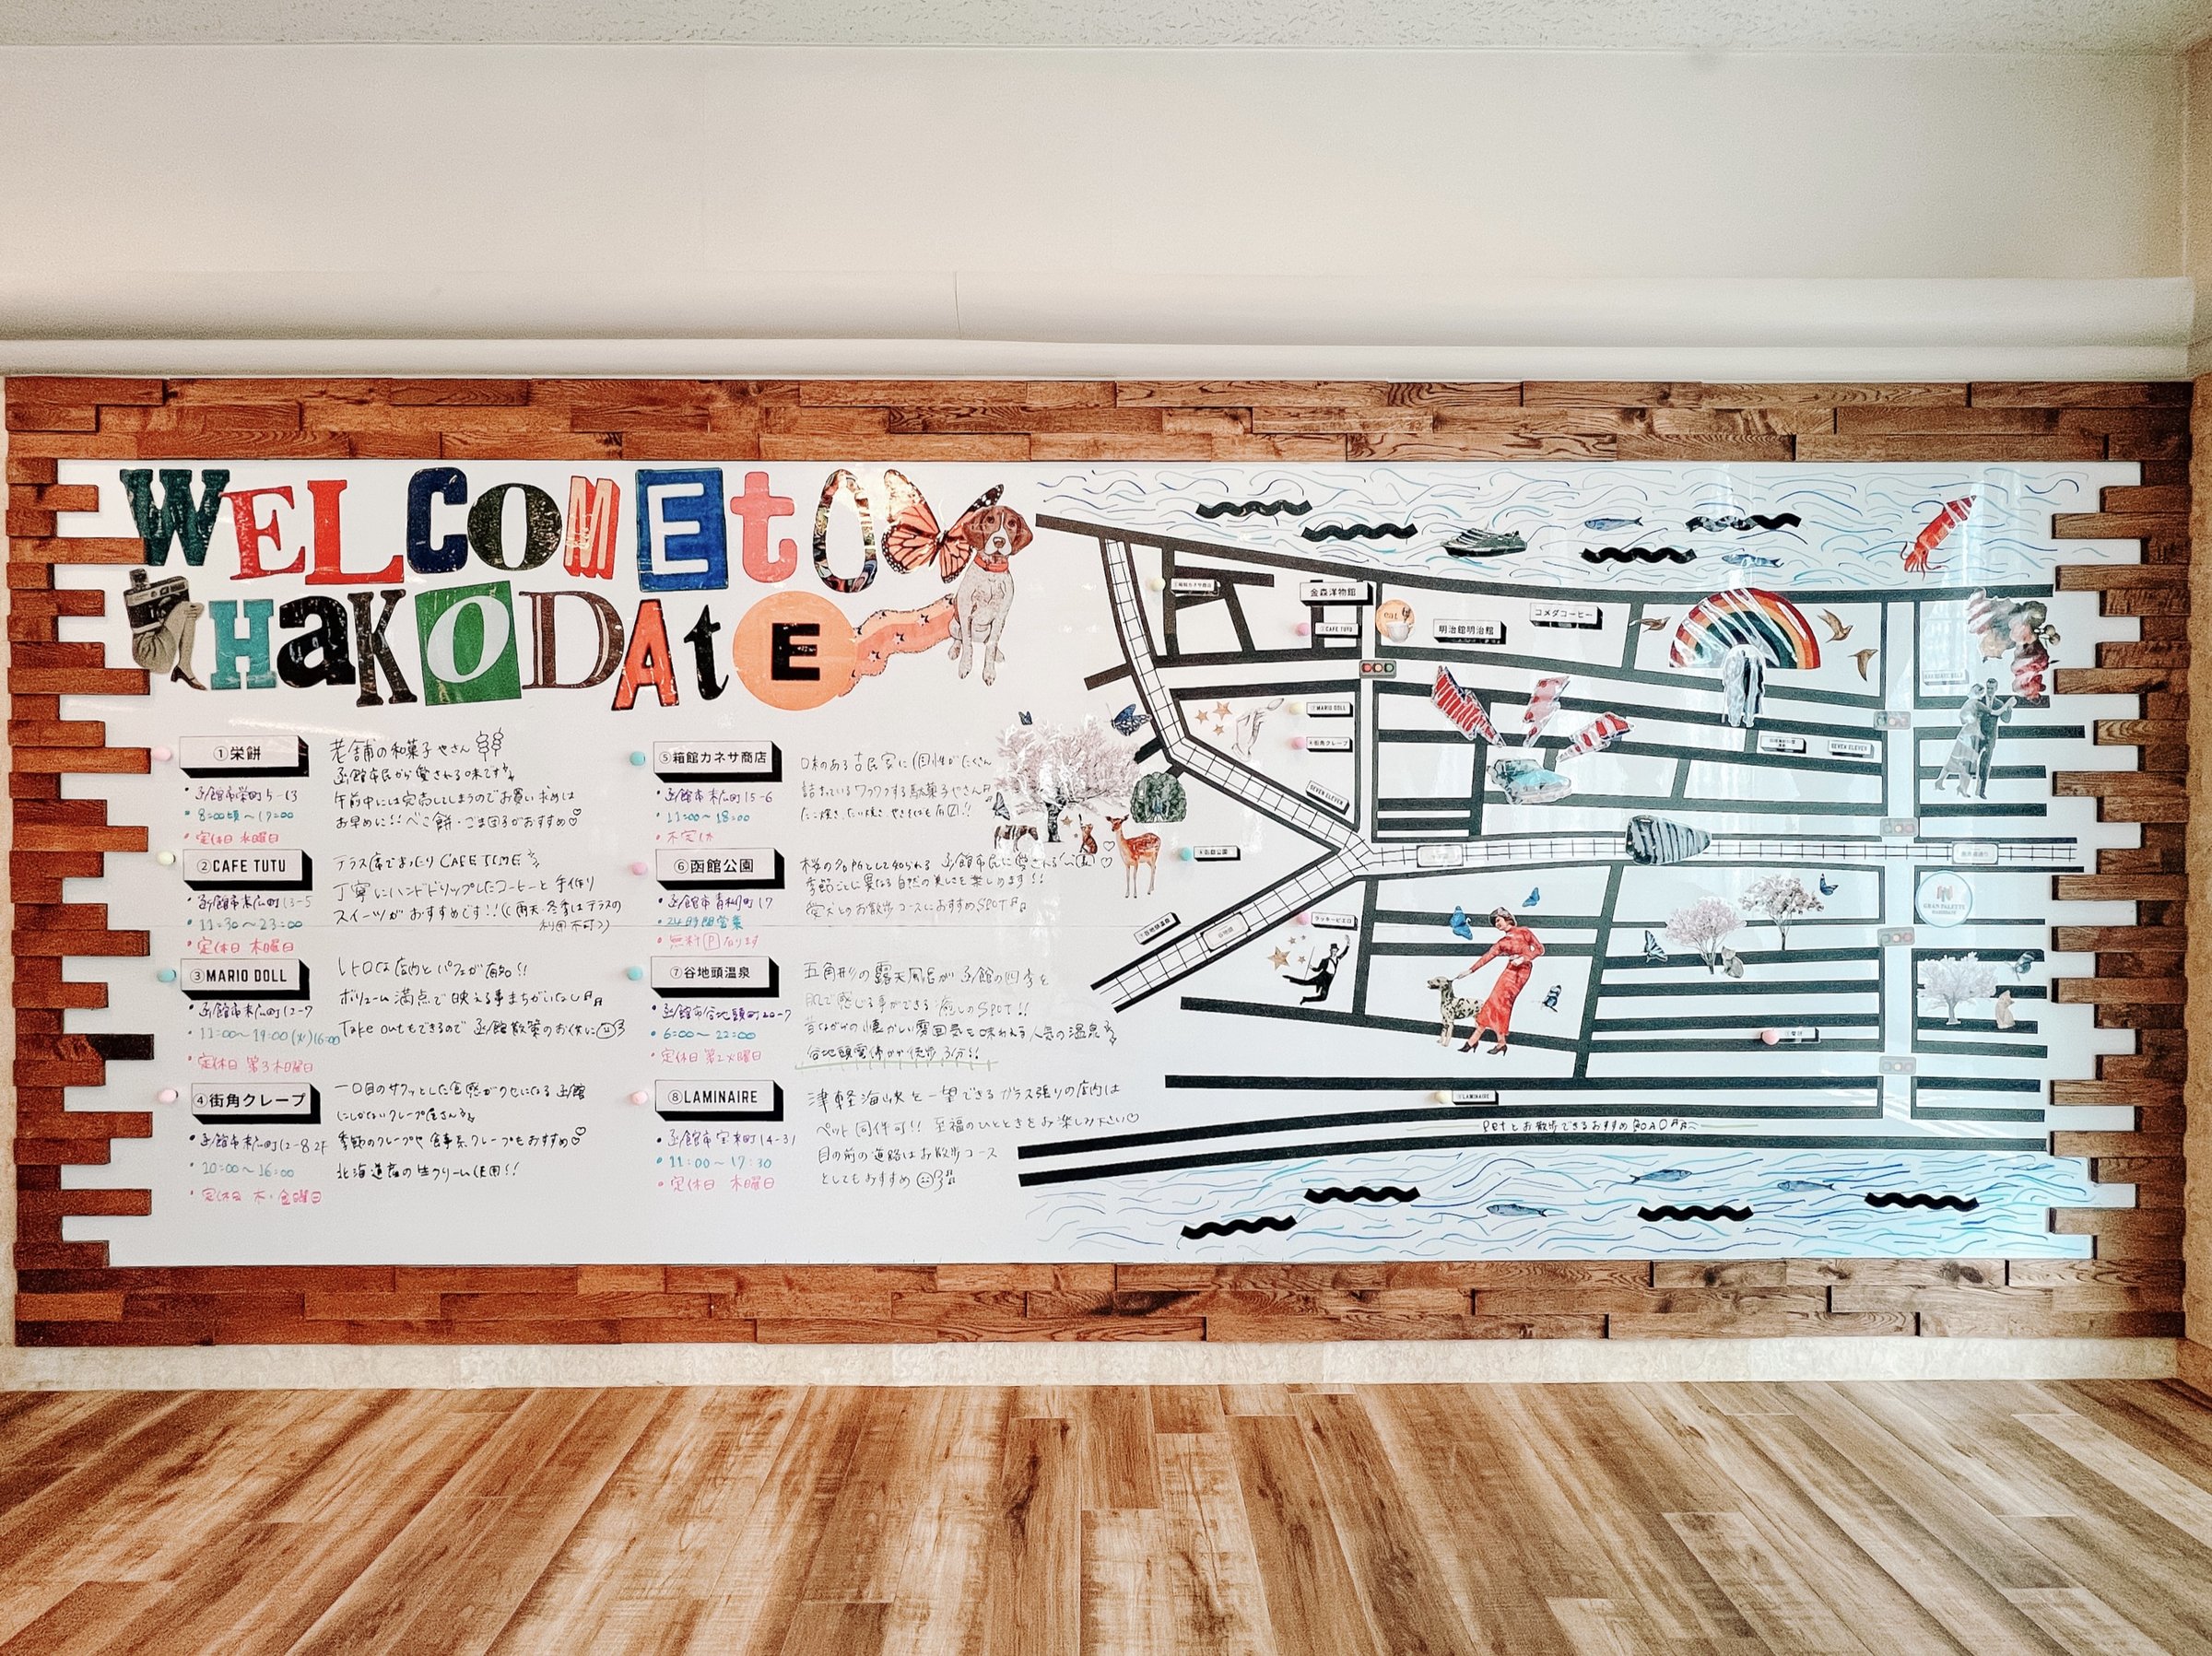 WELCOME to
HaKODAtE
①栄餅
老舗の和菓子やさん
函館市民から愛される味です
・函館市栄町5-13
午前中には完売してしまうのでお買い求めは
・8:00頃〜17:00
お早めに!!べこ餅・ごま団子がおすすめ♡
・定休日 水曜日
②CAFE TUTU
テラス席でまったり CAFE TIME
丁寧にハンドドリップしたコーヒーと手作り
・函館市末広町13-5
スイーツがおすすめです!!(雨天・冬季はテラスの
・11:30〜23:00
利用不可)
・定休日 木曜日
③MARIO DOLL
レトロな店内とパフェが有名!!
ボリューム満点で映える事まちがいなし
・函館市末広町12-7
・11:00〜19:00(火)16:00
Take outもできるので 函館散策のお供に
・定休日 第3木曜日
④街角クレープ
一口目のサクッとした食感がクセになる函館
にしかないクレープ屋さん
・函館市末広町12-8 2F
季節のクレープや食事系クレープもおすすめ♡
・10:00〜16:00
北海道産の生クリーム使用!!
・定休日 木・金曜日
⑤箱館カネサ商店
味のある古民家に個性がたくさん
・函館市末広町15-6
詰まっているワクワクする駄菓子やさん
・11:00〜18:00
たこ焼き、たい焼き、やきそばも
・不定休
⑥函館公園
桜の名所として知られる 函館市民に愛される
季節ごとに異なる自然の美しさを楽しめます!!
・函館市青柳町17
愛犬とのお散歩コースにおすすめSPOT
・24時間営業
・無料Ⓟあります
⑦谷地頭温泉
五角形の露天風呂が函館の四季を
肌で感じる事ができる癒しのSPOT!!
・函館市谷地頭町20-7
昔ながらの懐かしい雰囲気を味わえる人気の温泉
・6:00〜22:00
谷地頭電停から徒歩3分!!
・定休日 第2火曜日
⑧LAMINAIRE
津軽海峡を一望できるガラス張りの店内は
ペット同伴可!! 至福のひとときをお楽しみ下さい♡
・函館市宝来町14-31
目の前の道路はお散歩コース
・11:00〜17:30
としてもおすすめ
・定休日 木曜日
⑤箱館カネサ商店
金森洋物館
②CAFE TUTU
eat
明治館明治館
コメダコーヒー
③MARIO DOLL
④街角クレープ
SEVEN ELEVEN
SEVEN ELEVEN
⑥函館公園
⑦谷地頭温泉
谷地頭
ラッキーピエロ
GRAN PALETTE
①栄餅
⑧LAMINAIRE
Petとお散歩できるおすすめROAD